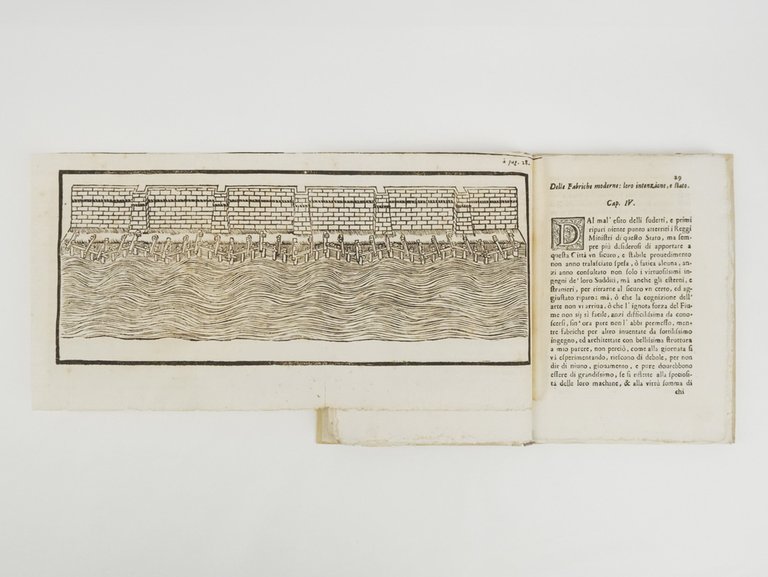 à pag. 28.
29
Delle Fabriche moderne: loro intenzione, e stato.
Cap. IV.
DAl mal' esito delli sudetti, e primi
ripari niente punto atteriti i Reggi
Ministri di questo Stato, ma sem-
pre più desiderosi di apportare a
questa Città vn sicuro, e stabile prouedimento
non anno tralasciato spesa, ò fatica alcuna, an-
zi anno consultato non solo i virtuosissimi in-
gegni de' loro Sudditi, mà anche gli esterni, e
stranieri, per ritrarne al sicuro vn certo, ed ag-
giustato riparo; mà, ò che la cognizione dell'
arte non vi arriua, ò che l'ignota forza del Fiu-
me non sij sì facile, anzi difficilissima da cono-
scersi, sin' ora pure non l'abbi permesso, men-
tre fabriche per altro inuentate da sottilissimo
ingegno, ed architettate con bellissima struttura
a mio parere, non perciò, come alla giornata si
và esperimentando, riescono di debole, per non
dir di niuno, giouamento, e pure dourebbono
essere di grandissimo, se si riflette alla speziosi-
tà delle loro machine, & alla virtù somma di
chi